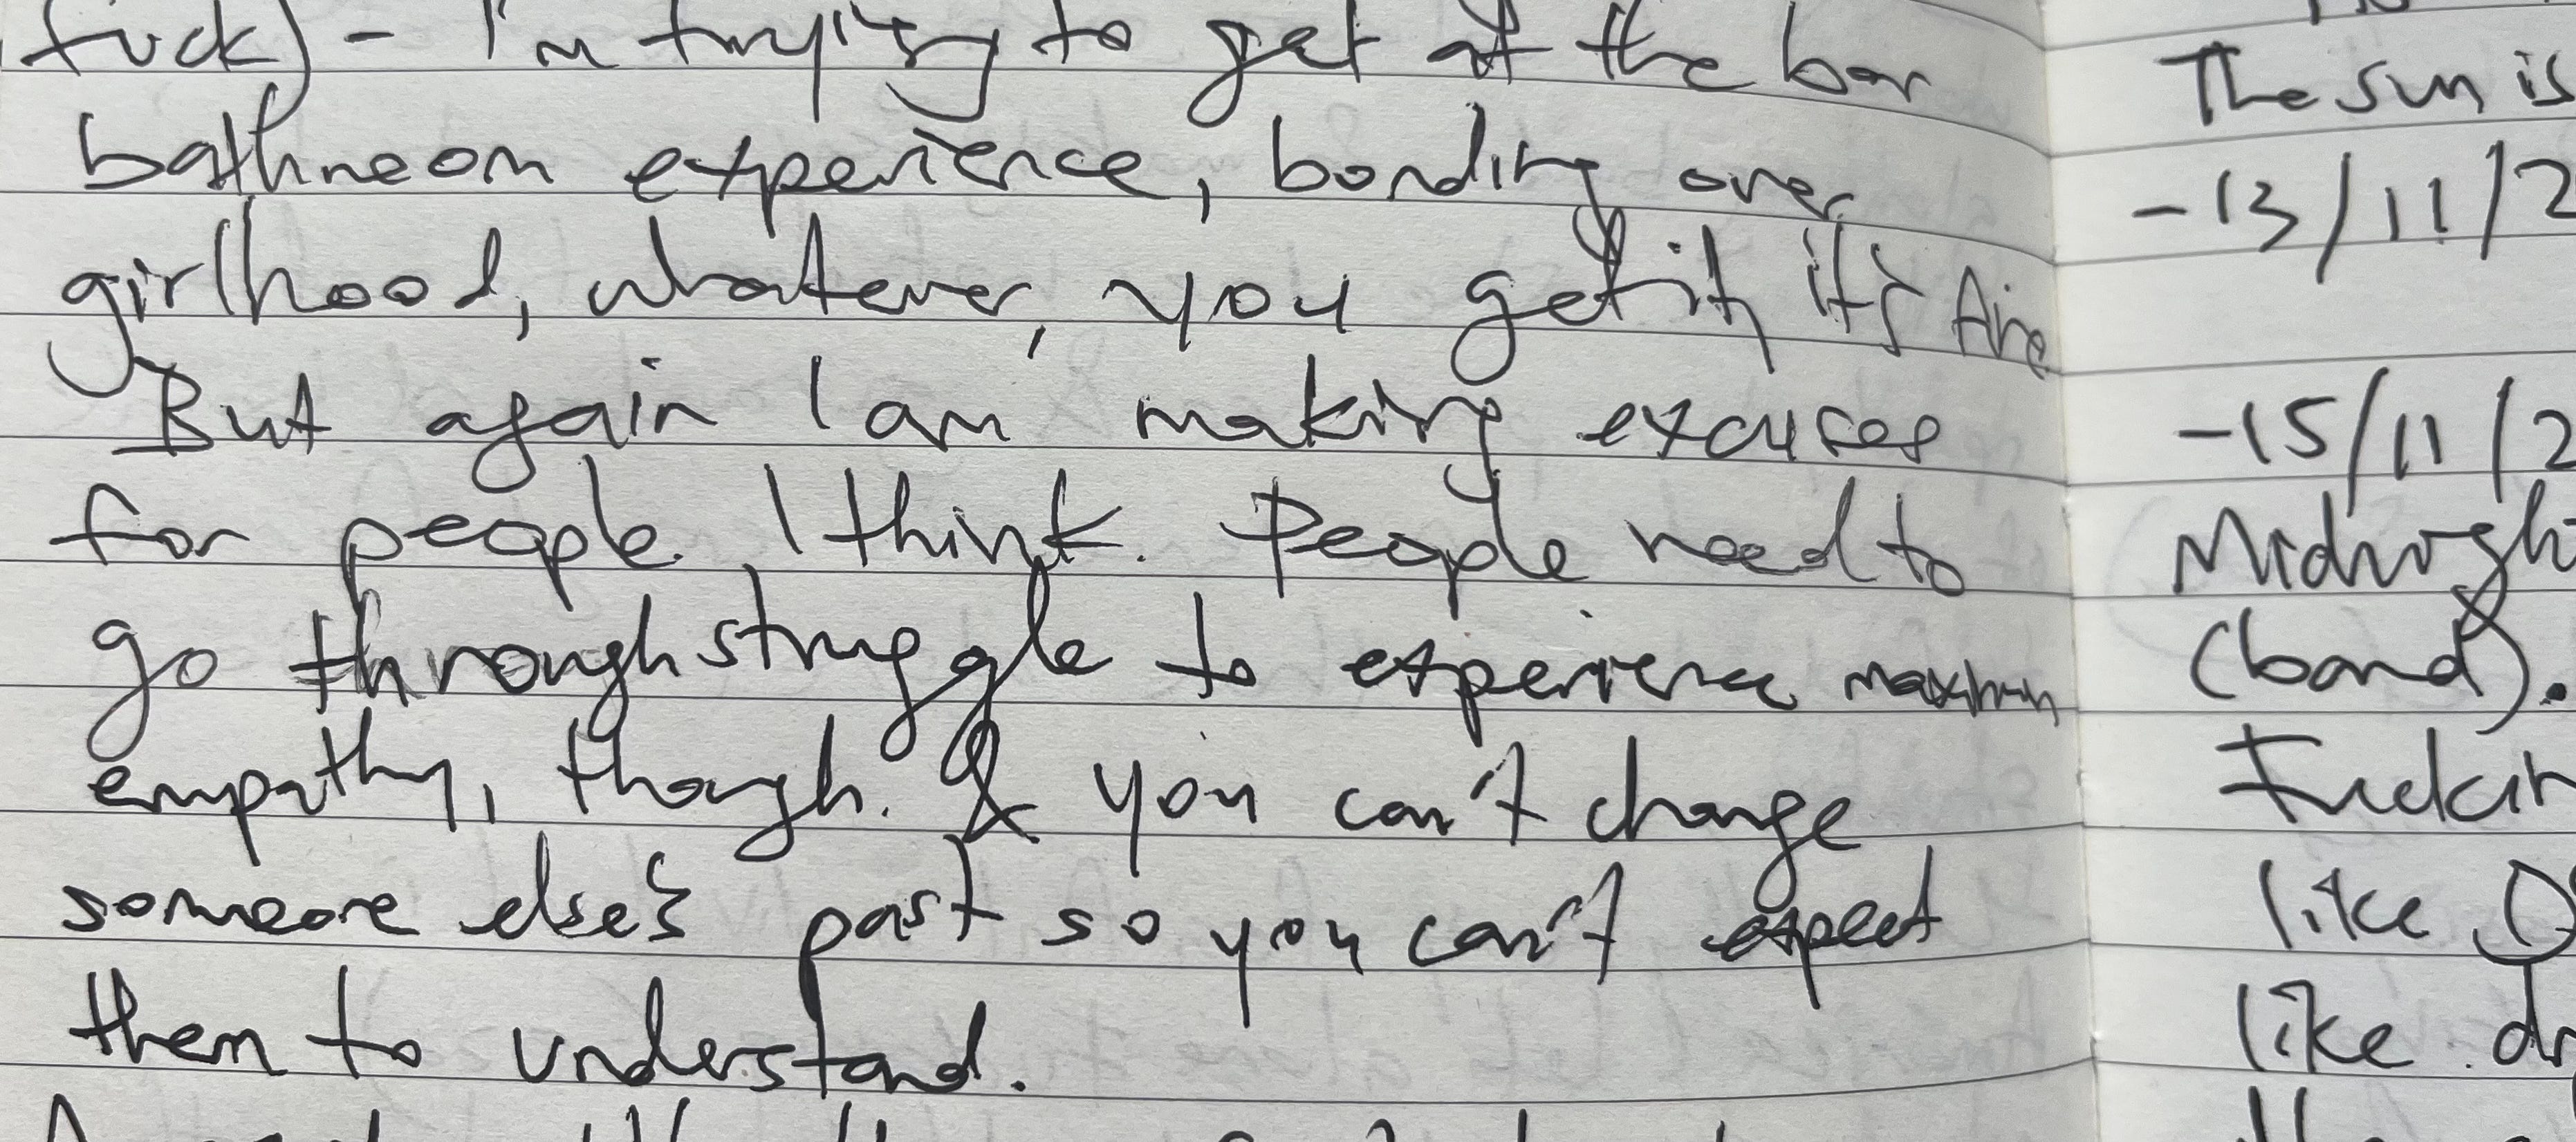 fuck) - I'm trying to get at the bar
bathroom experience, bonding over
girlhood, whatever, you get it, it's fine
But again I am making excuses
for people I think. People need to
go through struggle to experience maximum
empathy, though. & you can't change
someone else's past so you can't expect
them to understand.
The sun is
-13/11/2
-15/11/2
Midnigh
(band).
Fuckin
like
like